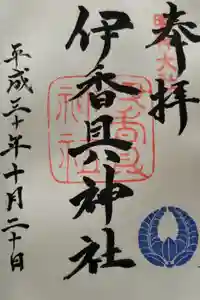 奉拝
伊香具神社
平成三十年十月二十日